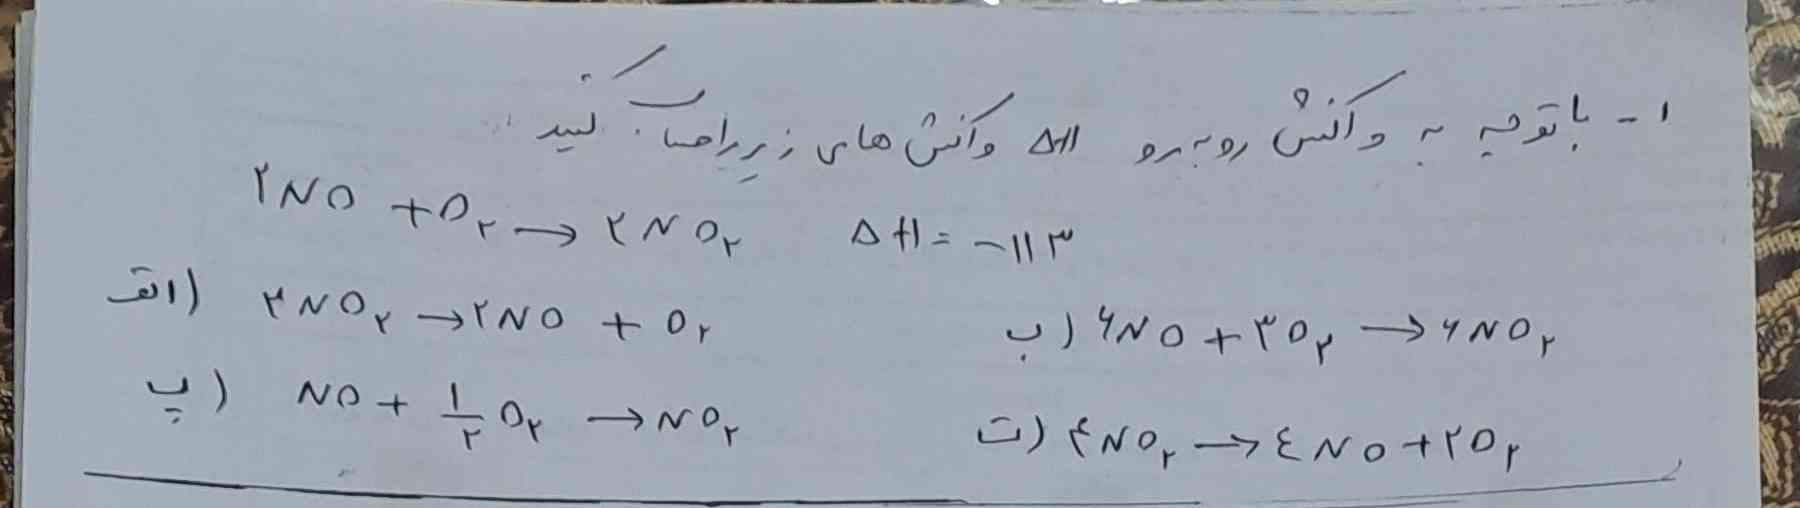 ۱- با توجه به واکنش روبه رو ΔH واکنش های زیر را حساب کنید.
۲NO + O₂ → ۲NO₂ ΔH = -۱۱۳
الف) ۲NO₂ → ۲NO + O₂
ب) ۶NO + ۳O₂ → ۶NO₂
پ) NO + ۱/۲ O₂ → NO₂
ت) ۴NO₂ → ٤NO + ۲O₂